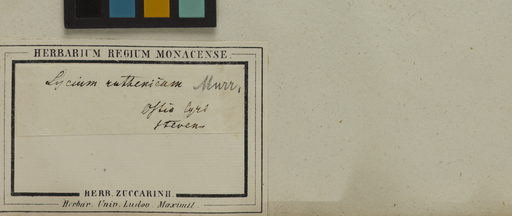 HERBARIUM REGIUM MONACENSE.
Lycium ruthenicum Murr,
Ostia Cyri
Steven
HERB. ZUCCARINII
Herbar. Univ. Ludov. Maximil.